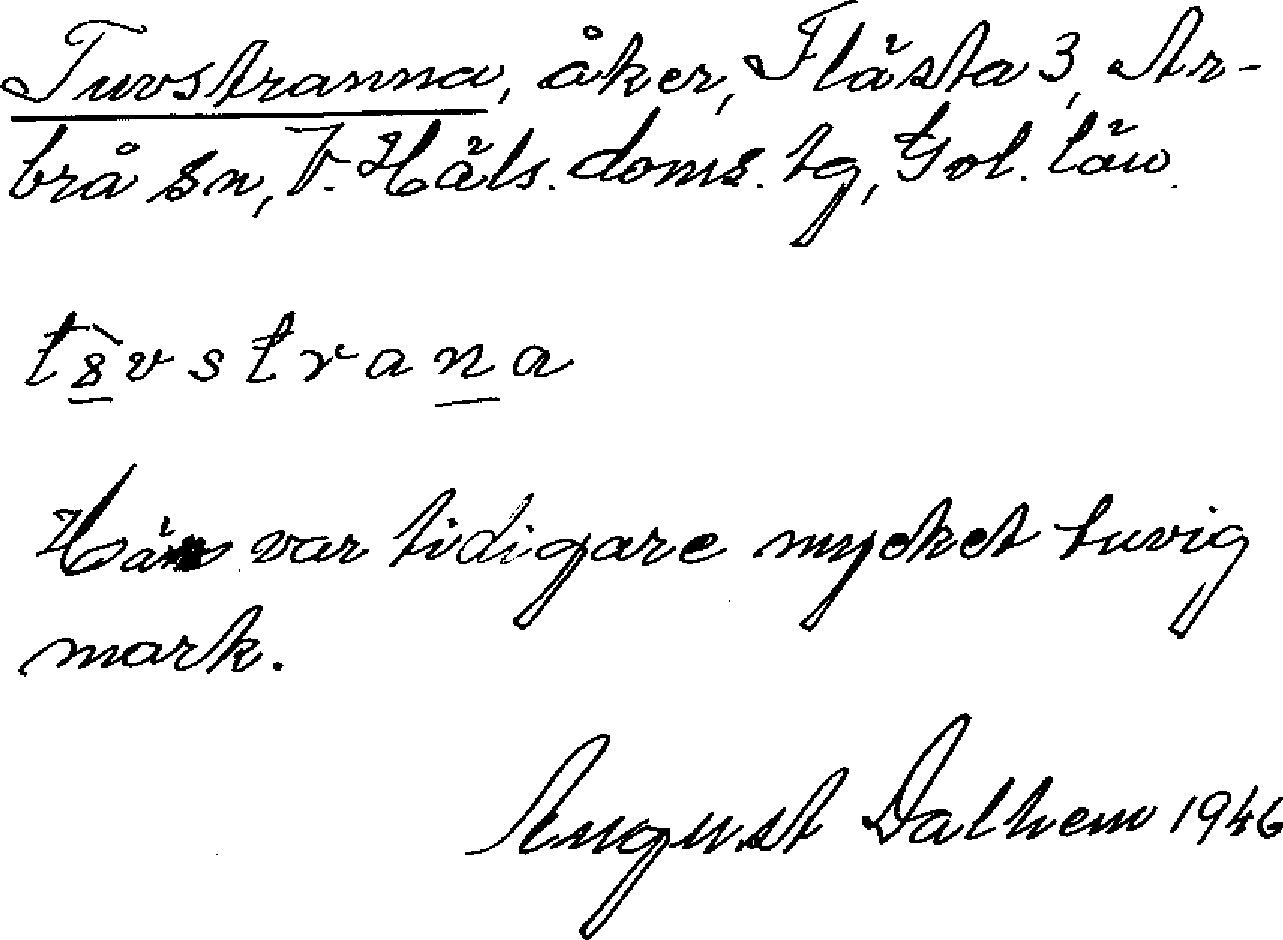 Tuvstranna, åker, Flästa 3, Ar-
brå sn, V. Häls. doms. tg, Gvl. län.
Här var tidigare mycket tuvig
mark.
August Dalhem 1946